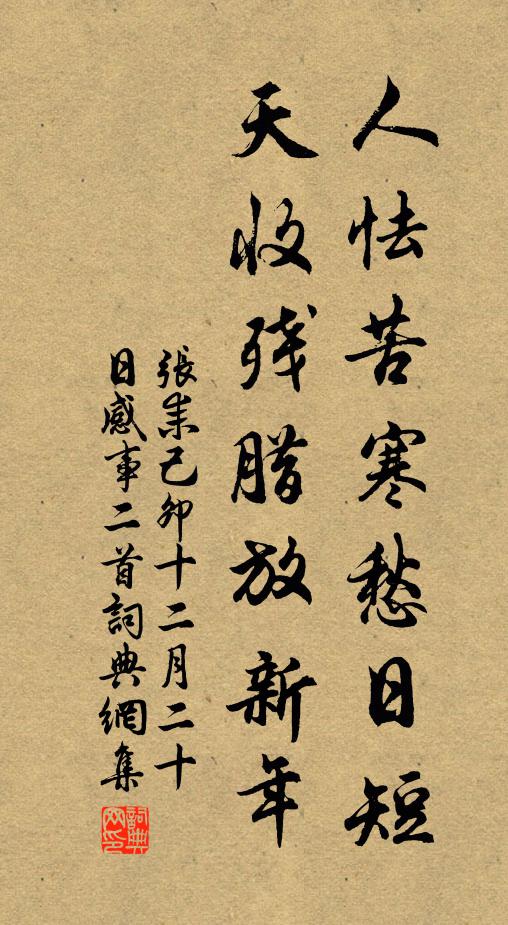 人怯苦寒愁日短
天收残腊放新年
張耒己卯十二月二十
日感事二首詞典網集
詞典网印